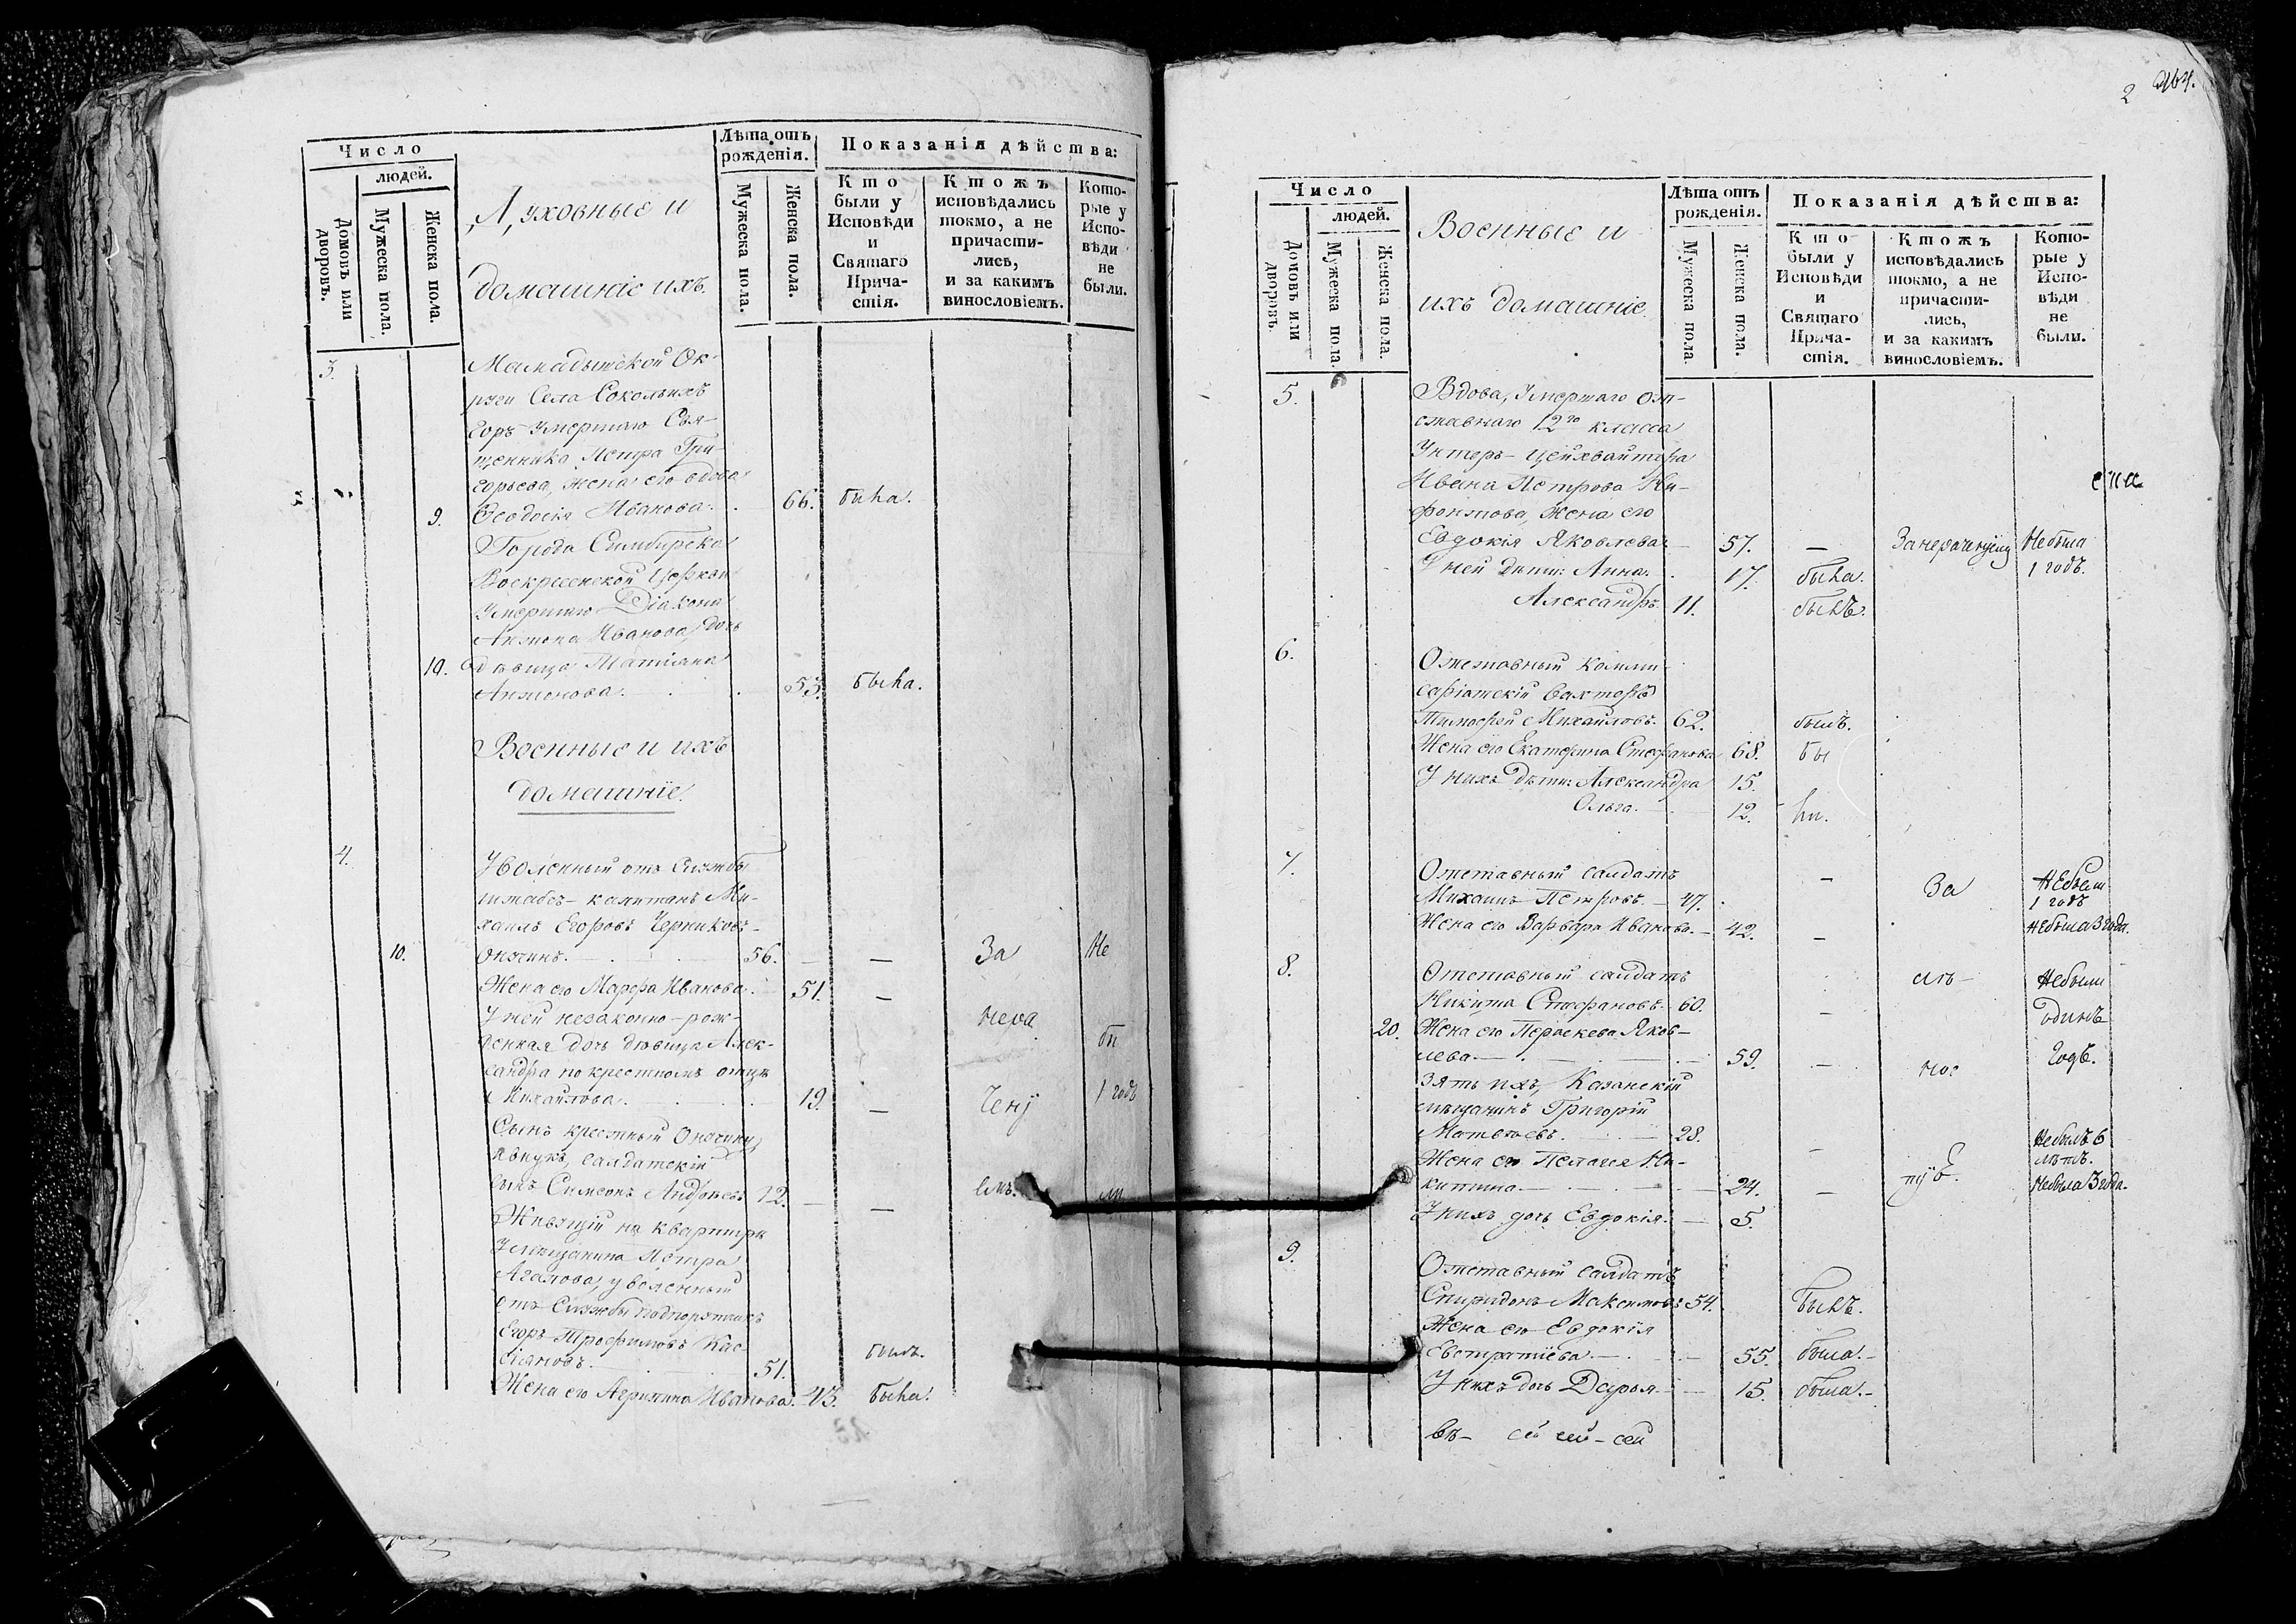 Число
людей.
Домовъ или дворовъ.
Мужеска пола.
Женска пола.
Духовные и
домашніе ихъ.
Лѣта отъ
рожденія.
Мужеска пола.
Женска пола.
Показанія дѣйства:
Кто
были у
Исповѣди
и
Святаго
Прича-
стія.
Ктожъ
исповѣдались
токмо, а не
причасти-
лись,
и за какимъ
винословіемъ.
Кото-
рые у
Испо-
вѣди
не
были.
3.
Мамадышской Ок-
руги Села Сокольихъ
Горъ умершаго Свя-
щенника Петра Гри-
горьева, жена его вдова
9. Ѳеодосія Иванова. 66. была.
Города Симбирска
Воскресенской Церкви
умершаго Діакона
Антона Иванова, дочь
10. дѣвица Татіана
Антонова. 53. была.
Военные и ихъ
домашніе.
4.
Уволенный отъ Службы
штабсъ-капитанъ Ми-
хаилъ Егоровъ Черников-
10. Онучинъ. 56. — За Не
Жена его Марѳа Иванова. 51. —
У ней незаконно-рож- нера
денная дочь дѣвица Алек- бы
сандра по крестномъ отцѣ
Михайлова. 19. — чені 1 годъ
Сынъ крестный Онучину
внукъ, салдатскій
сынъ Симеонъ Андреевъ 12. — емъ. ли
Живущій на квартирѣ
у мѣщанина Петра
Агапова, уволенный
отъ Службы подпорутчикъ
Егоръ Трофимовъ Кас-
сіяновъ. 51. былъ.
Жена его Агрипина Иванова. 43. была.
2 464.
Число
людей.
Домовъ или дворовъ.
Мужеска пола.
Женска пола.
Военные и
ихъ домашніе.
Лѣта отъ
рожденія.
Мужеска пола.
Женска пола.
Показанія дѣйства:
Кто
были у
Исповѣди
и
Святаго
Прича-
стія.
Ктожъ
исповѣдались
токмо, а не
причасти-
лись,
и за какимъ
винословіемъ.
Кото-
рые у
Испо-
вѣди
не
были.
5. Вдова, умершаго от-
ставнаго 12го класса
Унтеръ-цейхвайтера
Ивана Петрова Ни-
фонтова, жена его
Евдокія Яковлева 57. — За нераченіемъ Небыла
У ней дѣти: Анна. 17. была. 1 годъ.
Александръ. 11. былъ.
6. Отставный комми-
саріатскій вахтеръ
Тимоѳей Михайловъ. 62. былъ.
Жена его Екатерина Стефанова 68. бы
У нихъ дѣти: Александра 15.
Ольга. 12. ли.
7. Отставный салдатъ — За Небыл
Михаилъ Петровъ. 47. 1 годъ
Жена его Варвара Иванова. 42. — небыла 3 года.
8. Отставный салдатъ Небыли
Никита Стефановъ. 60. — одинъ
20. Жена его Параскева Яков-
лева 59. — годъ.
Зять ихъ, Казанскій
мѣщанинъ Григорій
Матвѣевъ. 28. — Небылъ 6
Жена его Пелагея Ни- лѣтъ.
китина 24. — Небыла 3 года.
У нихъ дочь Евдокія. 5.
9. Отставный салдатъ
Спиридонъ Максимовъ 54. былъ.
Жена его Евдокія
Евстратіева 55. была.
У нихъ дочь Дарья 15. была.